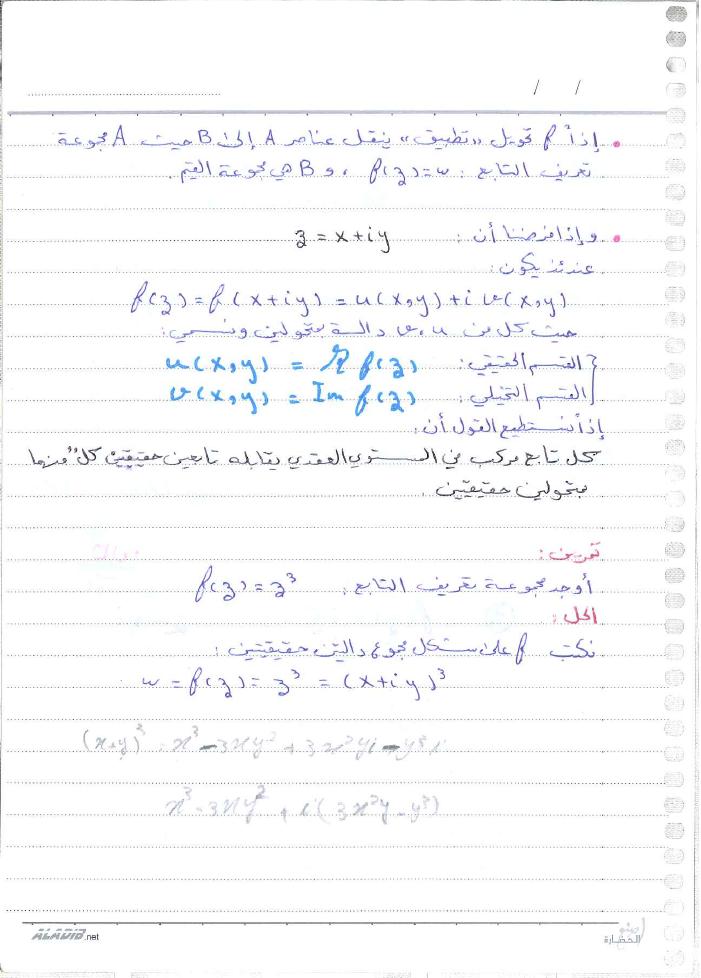 / /
• إذاً f تحويل «تطبيق» ينقل عناصر A إلى B حيث A مجموعة
تعريف التابع : f(z)=w ، و B هي مجموعة القيم.
• وإذا فرضنا أن : z = x+iy
عندئذ يكون:
f(z) = f(x+iy) = u(x,y) + i v(x,y)
حيث كل من u ، v دالة بمتحولين ونسمي:
القسم الحقيقي: u(x,y) = R f(z)
القسم التخيلي: v(x,y) = Im f(z)
إذاً نستطيع القول أن:
كل تابع مركب في المستوي العقدي يقابله تابعين حقيقيين كلٌ منهما
بمتحولين حقيقيين .
تمرين :
أوجد مجموعة تعريف التابع : f(z) = z³
الحل :
نكتب f على شكل مجموع دالتين حقيقيتين :
w = f(z) = z³ = (x+iy)³
(x+y)³ = x³ - 3xy² + 3x²yi - y³ i
x³ - 3xy² + i(3x²y - y³)
ALADIB.net
الحضارة